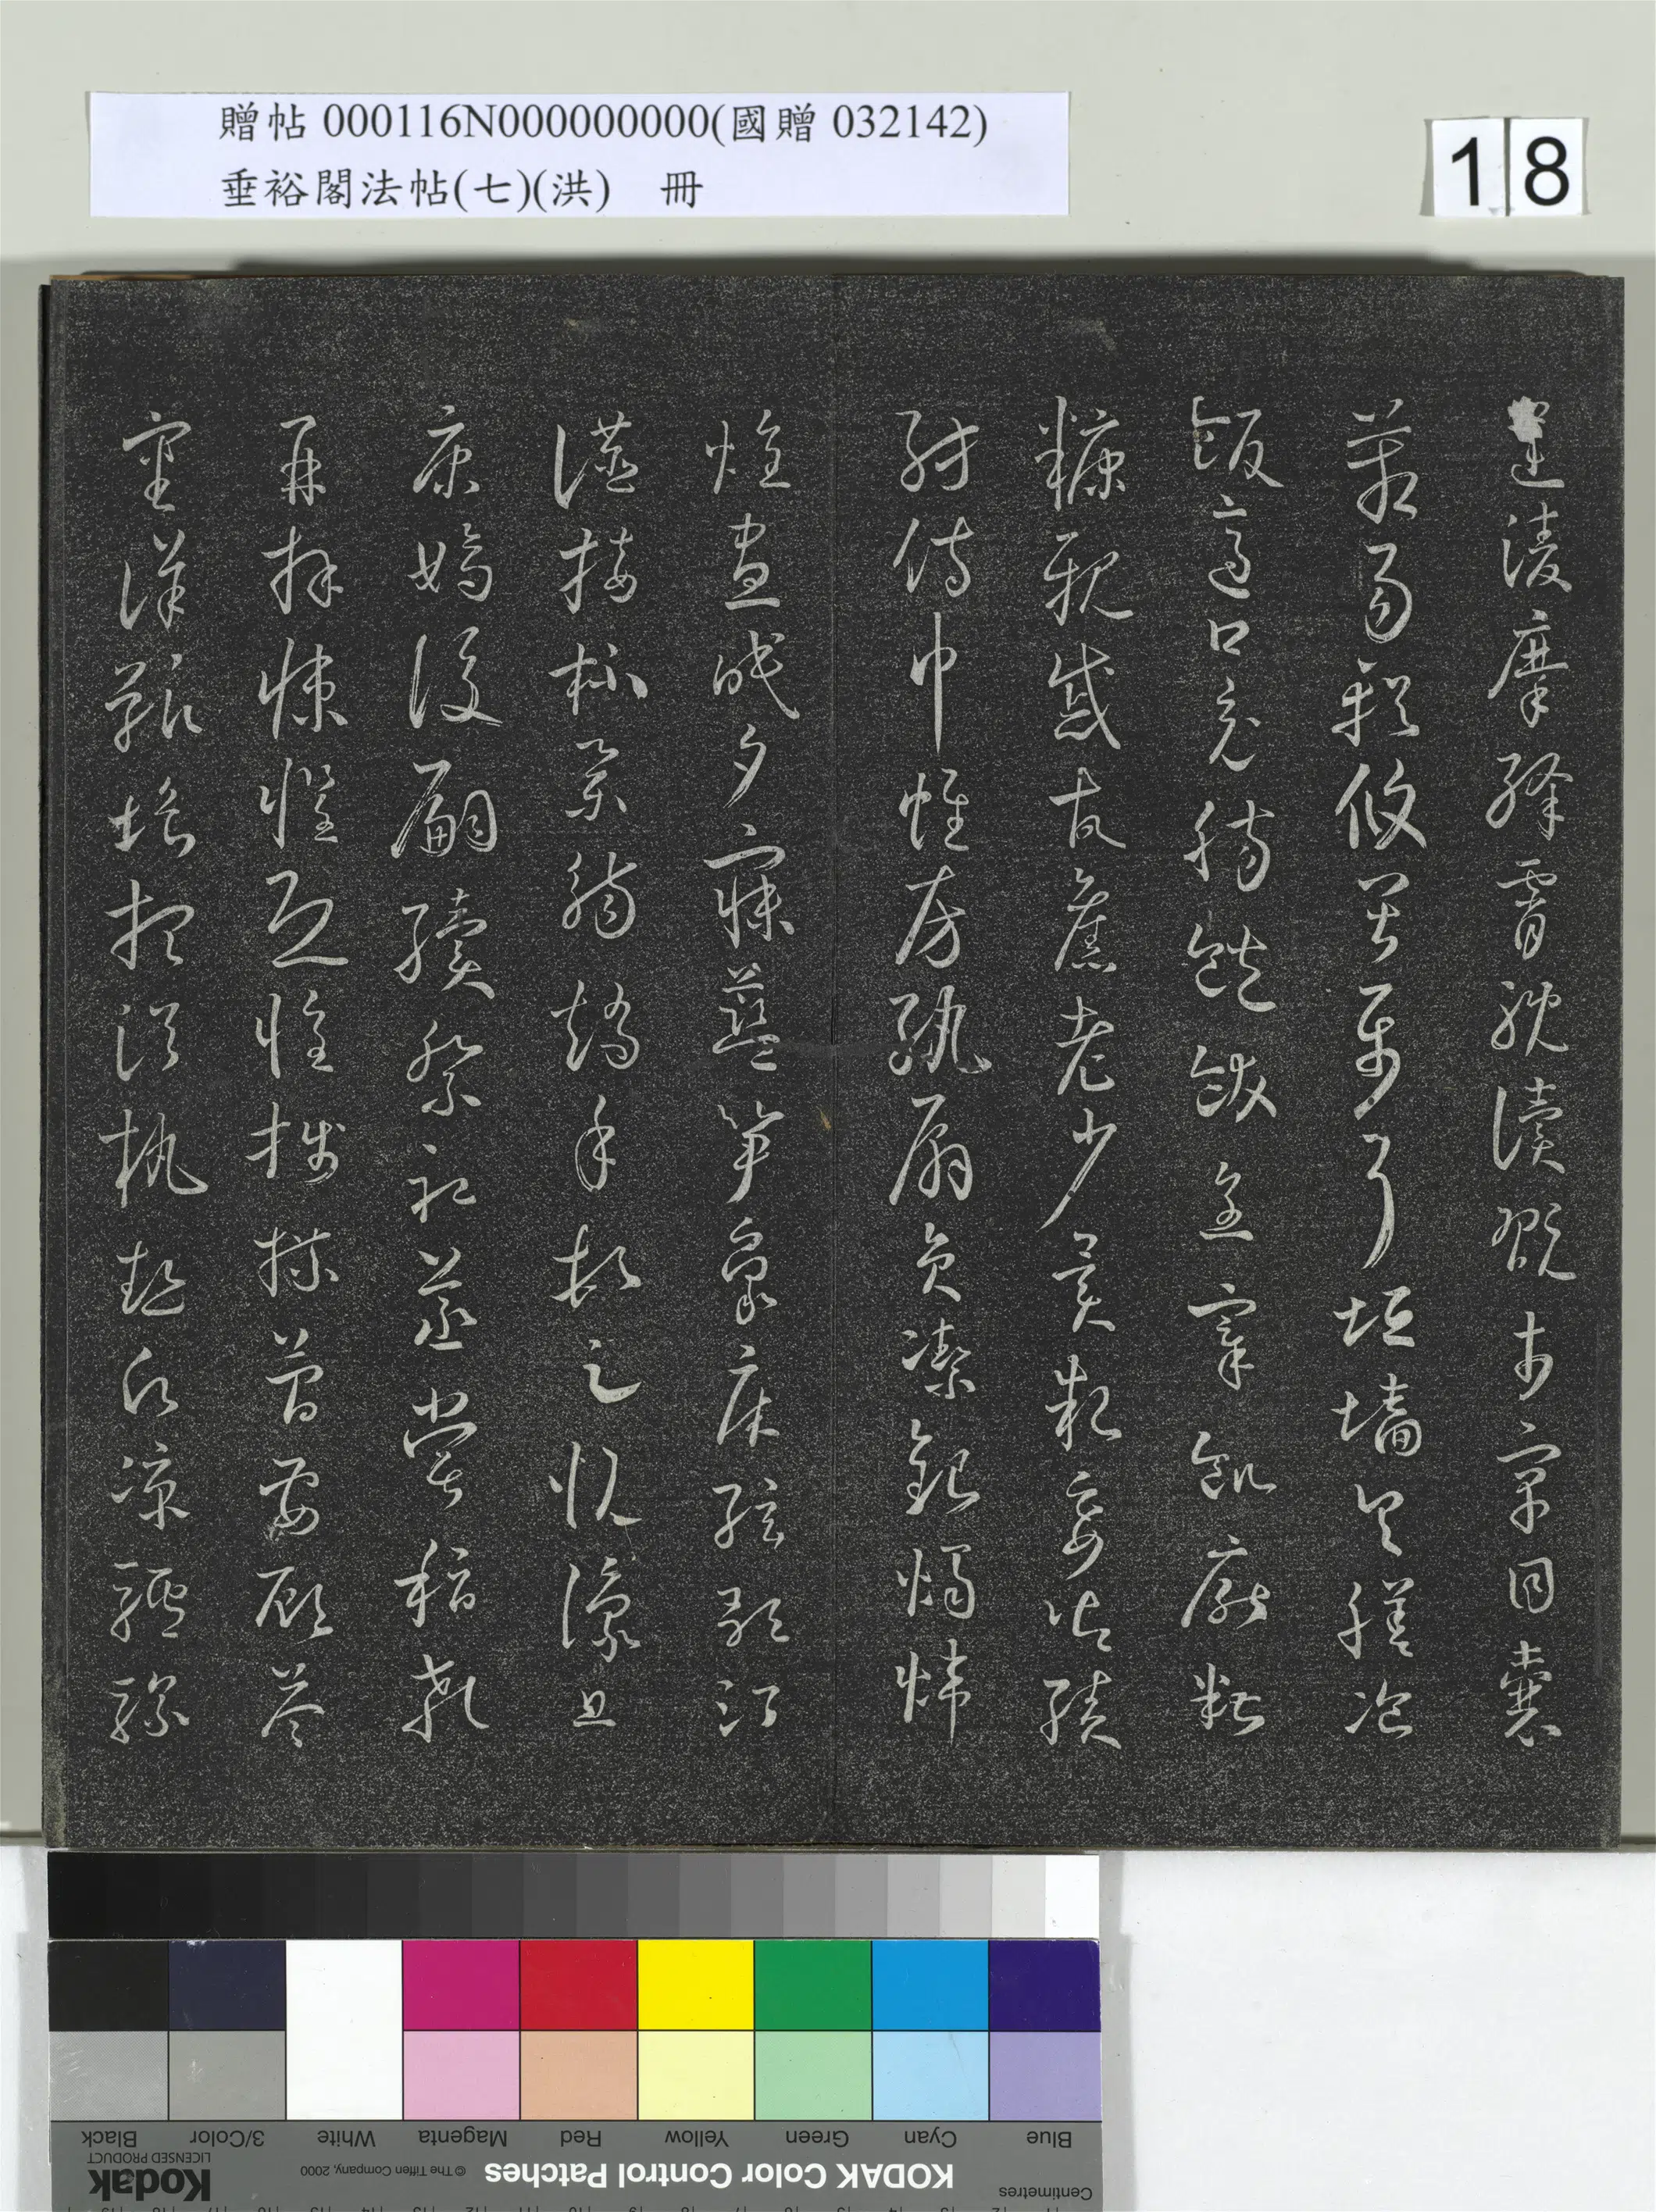 贈帖 000116N000000000(國贈 032142)
垂裕閣法帖(七)(洪) 冊
18
運凌摩絳霄耽讀翫市寓目囊
箱易輶攸畏屬耳垣墻具膳飡
飯適口充腸飽飫烹宰飢厭糟
糠親戚故舊老少異糧妾御績
紡侍巾帷房紈扇圓潔銀燭煒
煌晝眠夕寐藍笋象床弦歌酒
讌接杯舉觴矯手頓足悅豫且
康嫡後嗣續祭祀蒸嘗稽顙
再拜悚懼恐惶牋牒簡要顧答
審詳骸垢想浴執熱願凉驢騾
Blue Cyan Green Yellow Red Magenta White 3/Color Black
Centimetres
KODAK Color Control Patches
© The Tiffen Company, 2000
Kodak
LICENSED PRODUCT